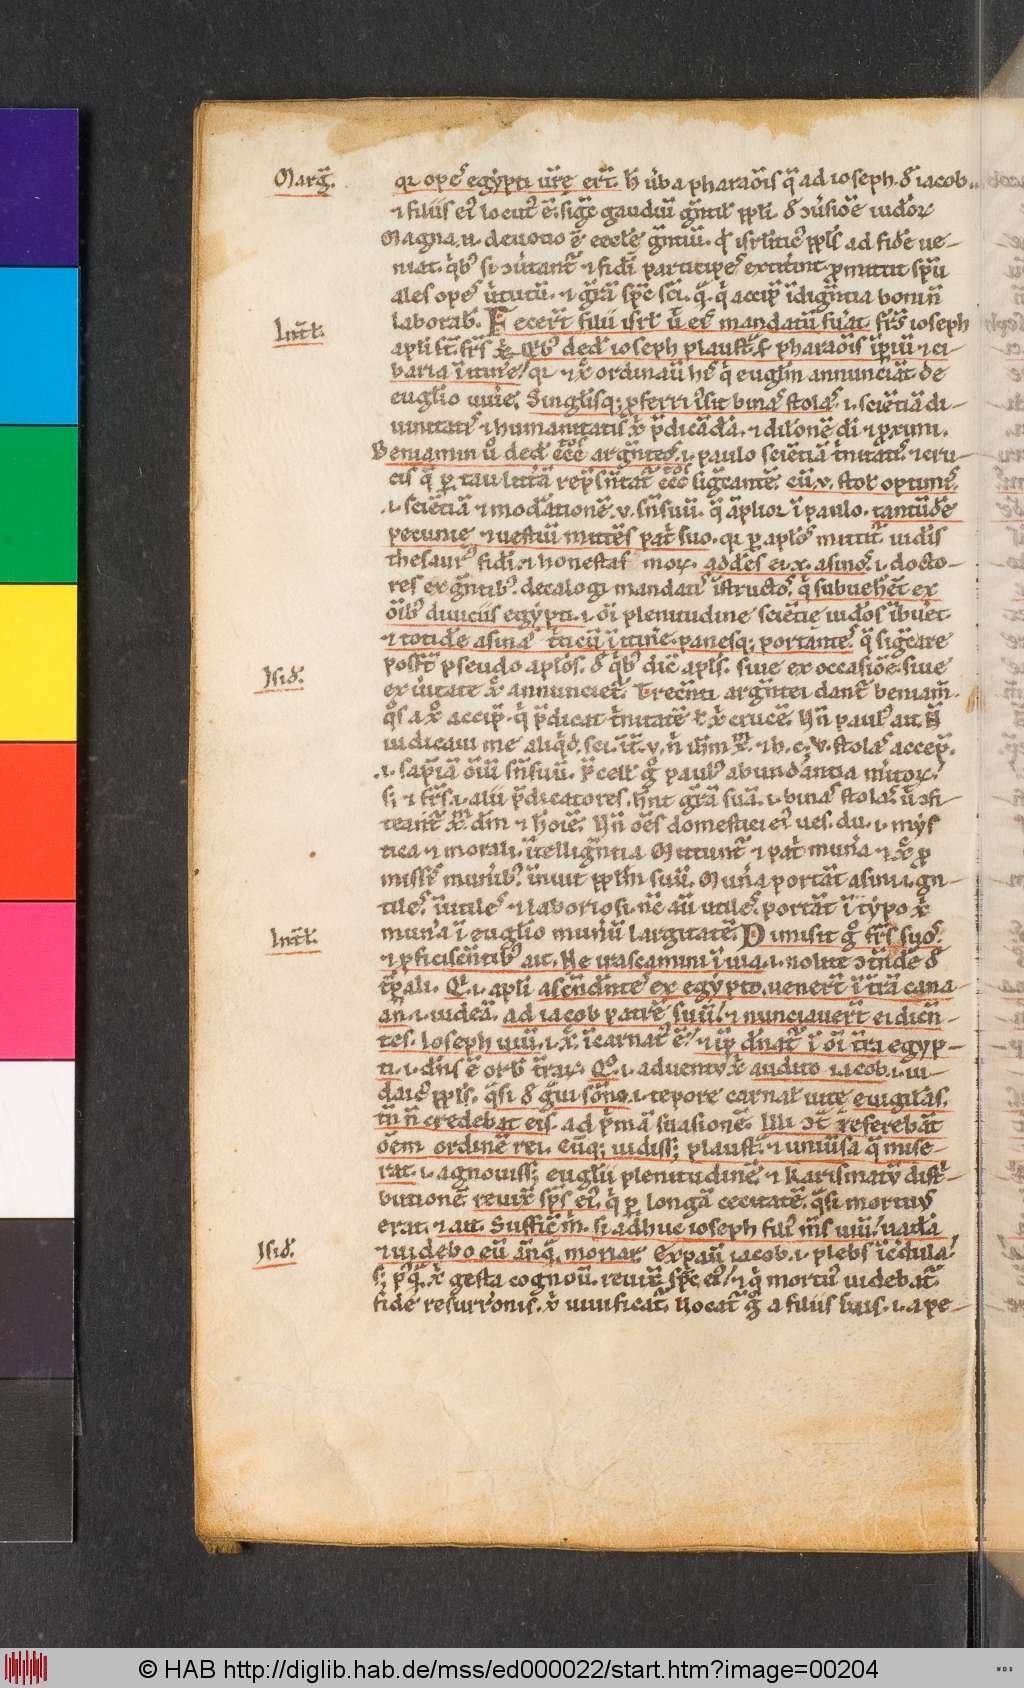 Marg̃.
q̃ ope᷒ egypti ur̃e er̃t. h̃ ũba pharaõis q̃ ad ioseph. δ̃ iacob.
⁊ filiis ei᷒ locut᷒ ẽ. sig̃t gaudiũ g̃ntil̃ ppl̃i. δ̃ ɔũsiõe iudeor̃
Magna.n. deuotio ẽ eccl̃e g̃ntiũ. q̃ isrl̃itic᷒ ppl̃s ad fidẽ ue-
niat. q̃b᷒ si ɔũtant̃ ⁊ fidi participes extit̃int. ꝓmittit sp̃u
ales opes ũtutũ. ⁊ gr̃a sp̃c sc̃i. q̃. q̃ accip̃ ĩdig̃ntia boni ñ
laborab̃.
Int̃l.
Fecer̃t filii isrl̃ ũ eis mandatũ fũat. fr̃s ioseph
apl̃i st̃. fr̃s x̃. Q̃b᷒ ded̃ ioseph plaust̃. ẽ pharaõis ĩpiũ ⁊ ci-
baria ĩ itiñe. q̃ ⁊ x̃ ordinaũ hĩs q̃ euglĩm annunciãt de
euglĩo uiũe. Singlĩsq; ꝓferri iũsit binas stolas. i. sciẽtiã di-
uinitatis ⁊ humanitatis x̃ p̃dicãdã. ⁊ dilc̃onẽ dĩ ⁊ ꝓximi.
Beniamin ũ ded̃ c̃c̃c̃ arg̃nt̃os. i. paulo sciẽtiã t̃nitatis ⁊ cru-
cis q̃ p̱ tau litt̃ã rep̃sñtat̃ c̃c̃c̃ sig̃cante. cũ. v. stol̃ optimis.
.i. sciẽtiã ⁊ mod̃ationẽ. v. sñsuũ. q̃ ãplior̃ ĩ paulo. tantũdẽ
pecunie ⁊ uestiũ mittẽs pat̃ suo. q̃ p̱ apl̃os mittit̃ iud̃is
thesaur᷒ fidi. ⁊ honestas mor̃. addẽs ei. x. asinos. i. docto-
res ex g̃ntib᷒. decalogi mandatis ĩstructos. q̃ subuehẽt ex
õib᷒ diuiciis egypti. i. õi plenitudine sciẽtie iud̃os ĩbuẽt
⁊ totidẽ asinas t̃ticũ ĩ itiñe. panesq; portantes. q̃ sig̃care
post̃t pseudo apl̃os. δ̃ q̃b᷒ dic̃ apl̃s. siue ex occasiõe. siue
Isid̃.
ex ũitate x̃ annunciet̃. Trecẽti arg̃ntei dant̃ beniam̃.
q̃s a x̃o accip̃. q̃ p̃dicat t̃nitatẽ ⁊ x̃ crucẽ. Uñ paul᷒ ait. Ñ
iudicaui me aliq̃d. sci. ĩt̃. v. ñ ih̃m x̃m ⁊ h. c. V. stolas accep̃.
.i. sap̃iã õiũ sñsuũ. p̃cell̃ g̊ paul᷒ abundãntia mitor̃.
s; ⁊ fr̃s. i. alii p̃dicatores. hñt gr̃ã suã. i. binas stolas. ũ ɔfi-
teant̃ x̃m dm̃ ⁊ hõiẽ. Uñ õẽs domestici ei᷒ ues. du. i. mys
tica ⁊ morali. ĩtellig̃ntia Mittunt̃ ⁊ pat̃ muña ⁊ x̃o p̱
missis munib᷒ ĩuuit ppl̃m suũ. Muña portãt asini. i. gñ-
tiles. ĩutiles ⁊ laboriosi. nc̃ aũ utiles. portãt ĩ typo x̃
muña ĩ euglĩo munũ largitatẽ.
Int̃l.
Dimisit g̊ fr̃s suos.
⁊ ꝓficisc̃entib᷒ ait. Ne irascamini ĩ uia. i. nolite ɔtñdẽ δ̃
t̃p̱ali. Q̃. i. apl̃i ascẽndẽntes ex egypto. uener̃t ĩ t̃rã cana
añ. i. iudeã. ad iacob patrẽ suũ. ⁊ nunciauer̃t ei dicñ-
tes. Ioseph uiũ. i. x̃. ĩcarnat᷒ ẽ. ⁊ ip̃ d̃nat̃ ĩ õi t̃ra egyp-
ti. i. dñs ẽ orb̃ t̃rar̃. Q̃o. i. aduentũ x̃ audito iacob. i. iu-
daic᷒ ppl̃s. q̃si δ̃ g̃ui sõno. i. tepore carnal̃ uite euigilãs.
tñ ñ credebat eis. ad p̃mã suasionẽ. Illi ɔ̃t referebãt
õem ordinẽ rei. Cũq; uidiss; plaust̃. ⁊ uniũsa q̃ mise-
rat. i. agnouiss; euglĩi plenitudinẽ. ⁊ karismatũ dist̃i-
butionẽ. reuix̃ sp̃s ei᷒. q̃ p̱ longã cecitatẽ. q̃si mortuus
erat. ⁊ ait. Suffic̃ m̃. si adhuc ioseph fil᷒ m̃s uiũ. uadã
⁊ uidebo eũ ãnq̃ moriar̃.
Isid̃.
Expaũ iacob. i. plebs ĩc̃dula.
s; p᷒q̃ x̃ gesta cognoũ. reuix̃ sp̃c ei᷒. ⁊ q̃ mortu᷒ uidebat̃.
fidẽ resurr̃onis. x̃ uiuificat̃. Uocat̃ g̊ a filiis suis. i. a pe-
© HAB http://diglib.hab.de/mss/ed000022/start.htm?image=00204